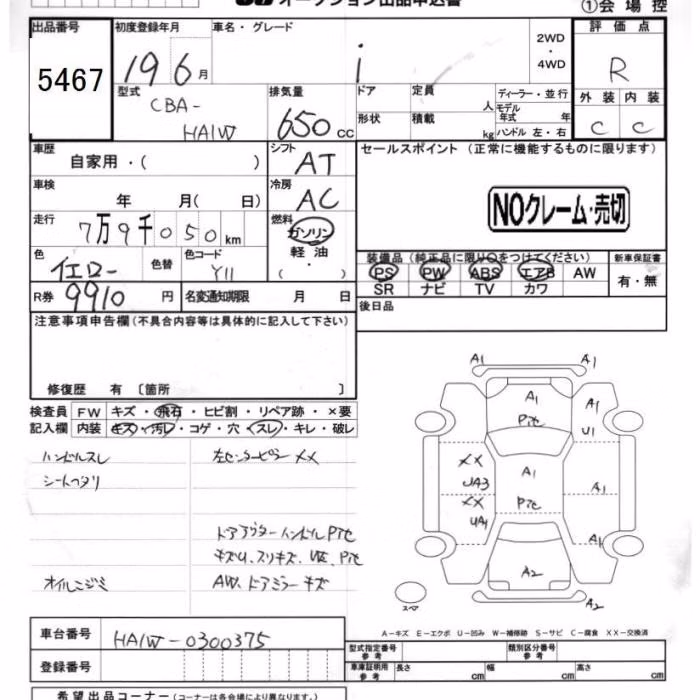 オークション出品申込書
①会場控
出品番号
5467
初度登録年月
19 6月
車名・グレード
i
2WD
・
4WD
評価点
R
型式
CBA-
HA1W
排気量
650 cc
ドア
形状
定員 人
積載 kg
ディーラー・並行
モデル年式 年
ハンドル 左・右
外装 内装
C C
車歴
自家用・( )
シフト
AT
車検
年 月( 日)
冷房
AC
走行
7万9千050km
燃料
ガソリン
軽油
( ・ )
色
イエロー
色替
色コード
Y11
R券
9910円
名変通知期限 月 日
セールスポイント (正常に機能するものに限ります)
NOクレーム・売切
装備品(純正品に限り○をつけてください)
PS PW ABS エアB AW
SR ナビ TV カワ
新車保証書
有・無
後日品
注意事項申告欄(不具合内容等は具体的に記入して下さい)
修復歴 有 〔箇所 〕
検査員 FW キズ・飛石・ヒビ割・リペア跡・×要
記入欄 内装 キズ・汚レ・コゲ・穴・スレ・キレ・破レ
ハンドルスレ
シートヘタリ
オイルニジミ
左センターピラーXX
ドアアウターハンドルPTC
キズU、スリキズ、
AW、ドアミラーキズ
A1 A1
A1
Pte
A1
U1
XX
UA3
XX
UA1
A1
Pte
A1
A1
A2
A2
スペア
A-キズ E-エクボ U-凹み W-補修跡 S-サビ C-腐食 XX-交換済
車台番号
HA1W-0300375
登録番号
型式指定番号 参考
類別区分番号 参考
車庫証明用 参考
長さ cm
幅 cm
高さ cm
希望出品コーナー(コーナーは各会場により異なります。)